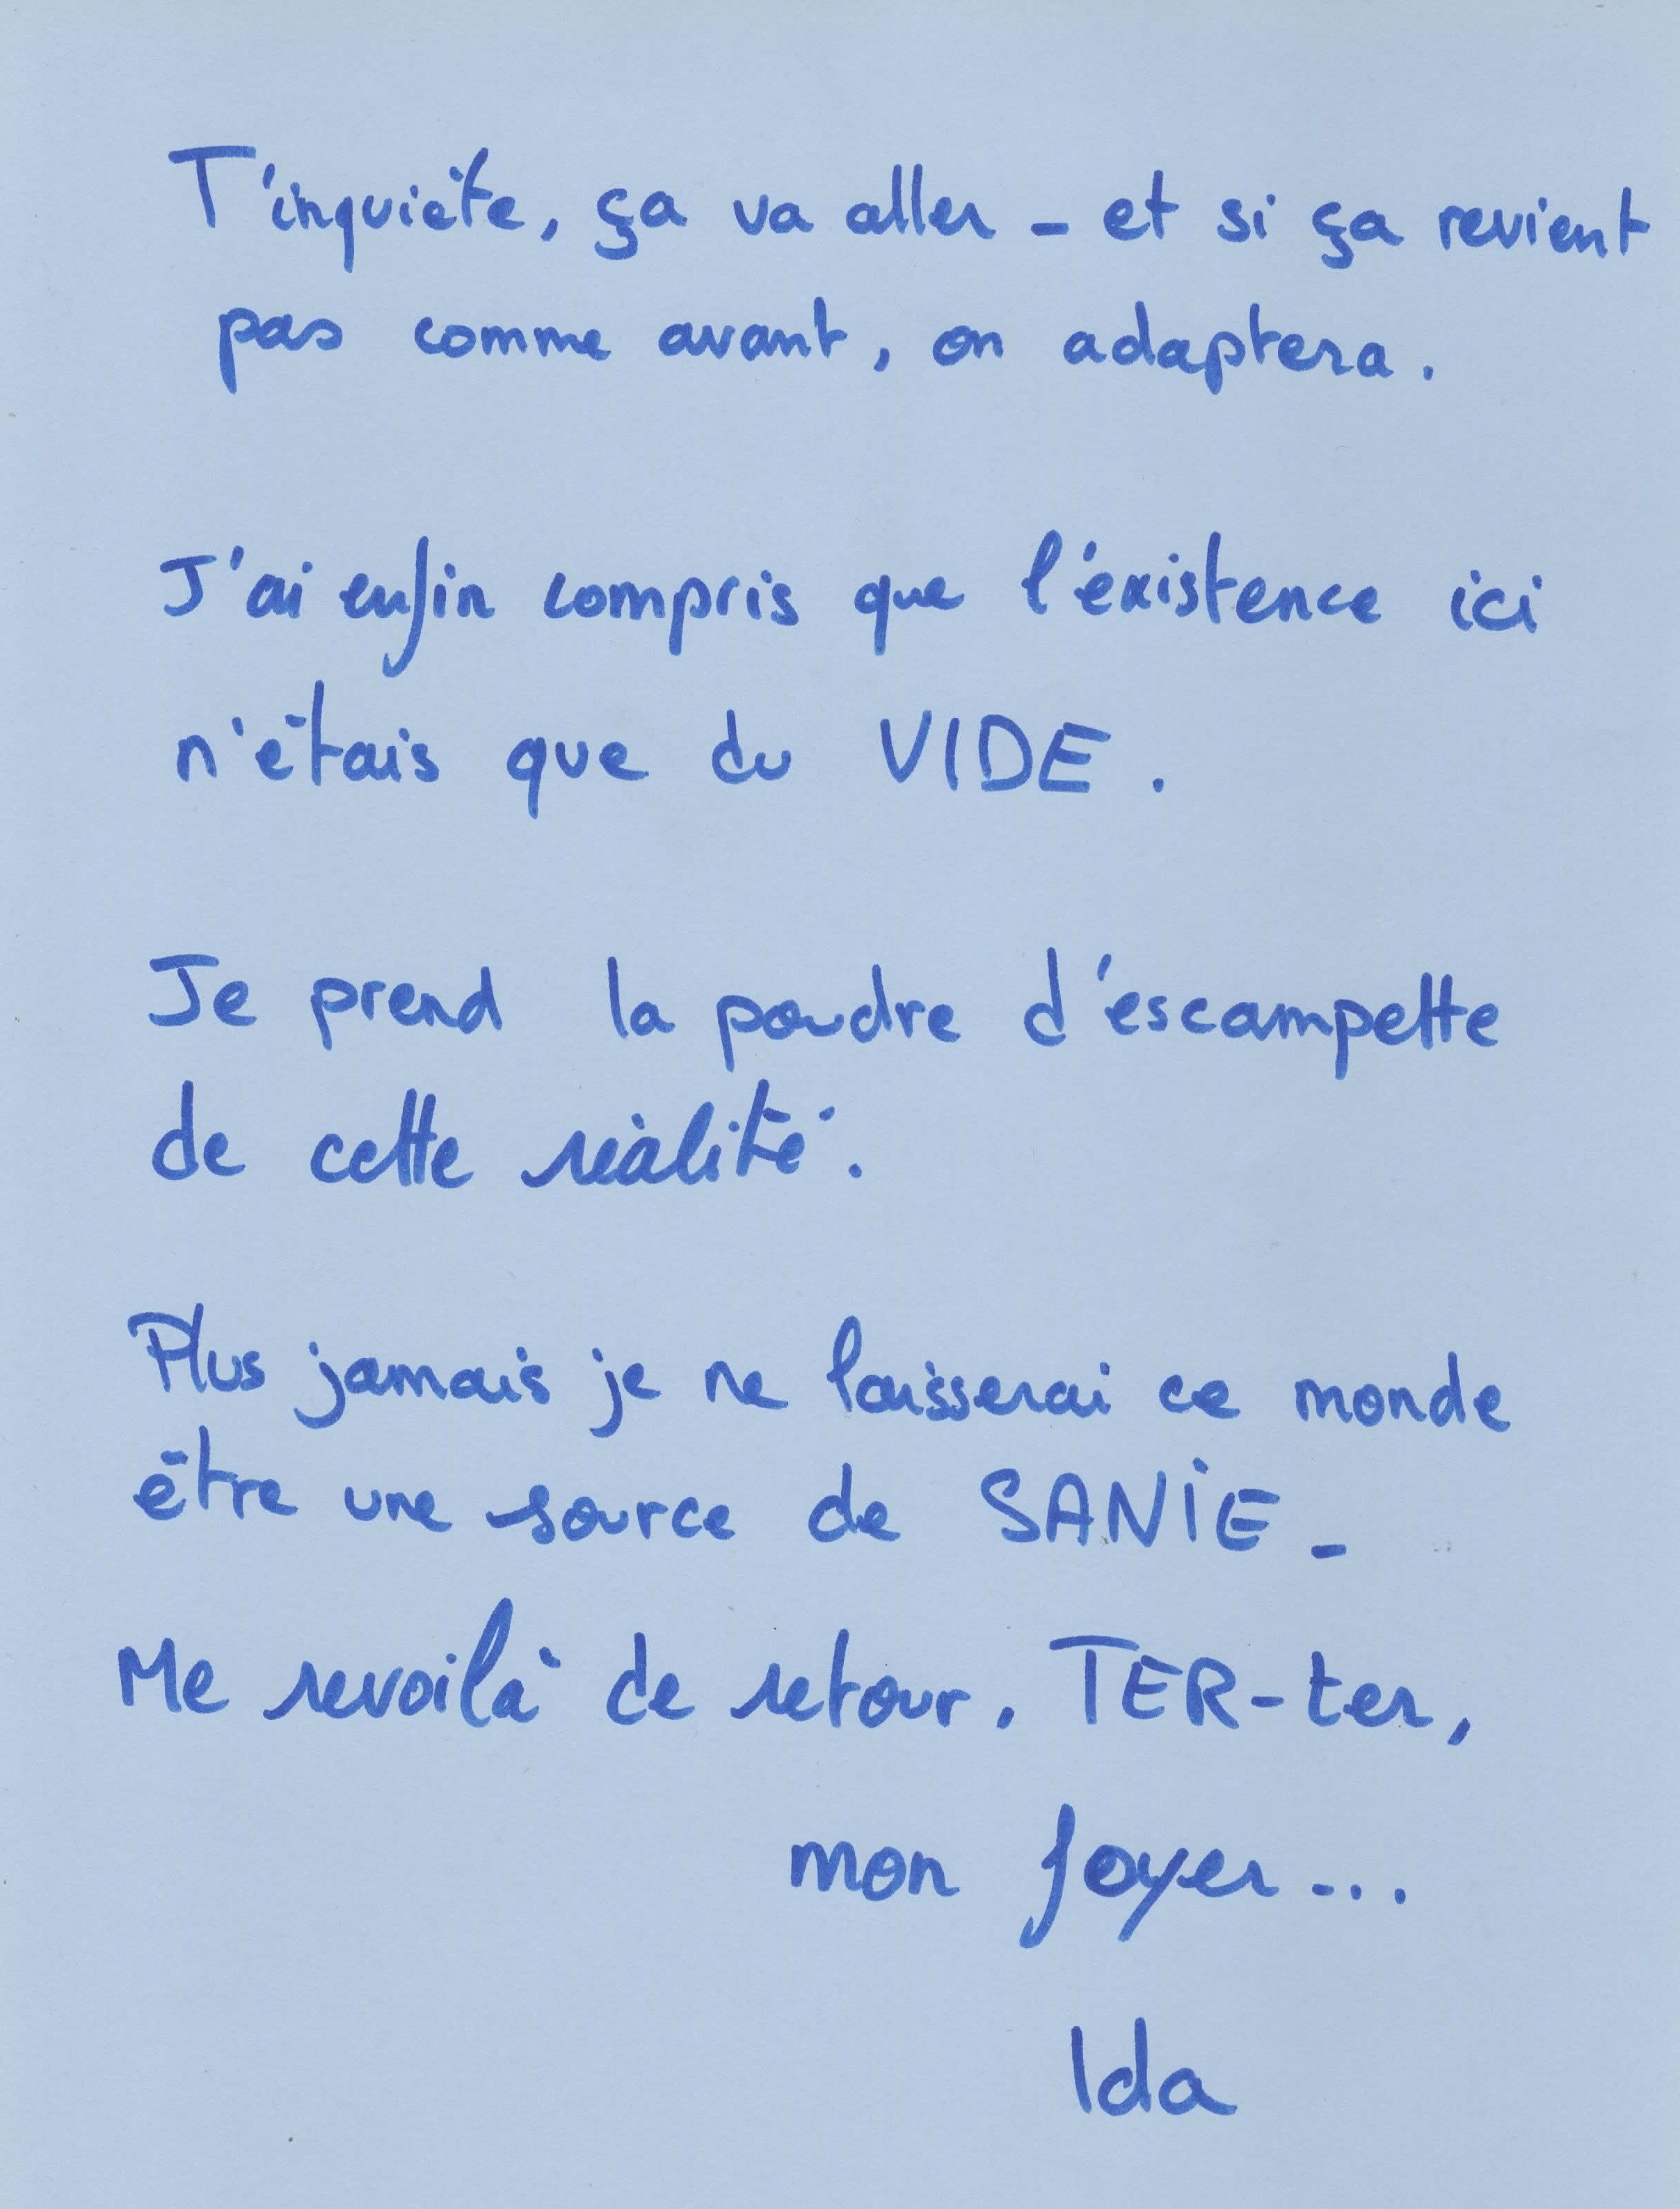 T'inquiète, ça va aller - et si ça revient
pas comme avant, on adaptera.
J'ai enfin compris que l'éxistence ici
n'étais que du VIDE.
Je prend la poudre d'escampette
de cette réalité.
Plus jamais je ne laisserai ce monde
être une source de SANiE -
Me revoilà de retour. TER-ter,
mon foyer...
Ida